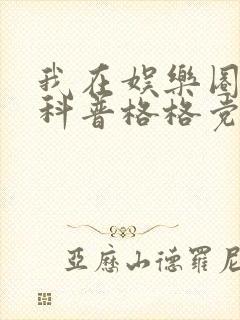 我在娱樂圈
科普格格党
亞歷山德羅尼